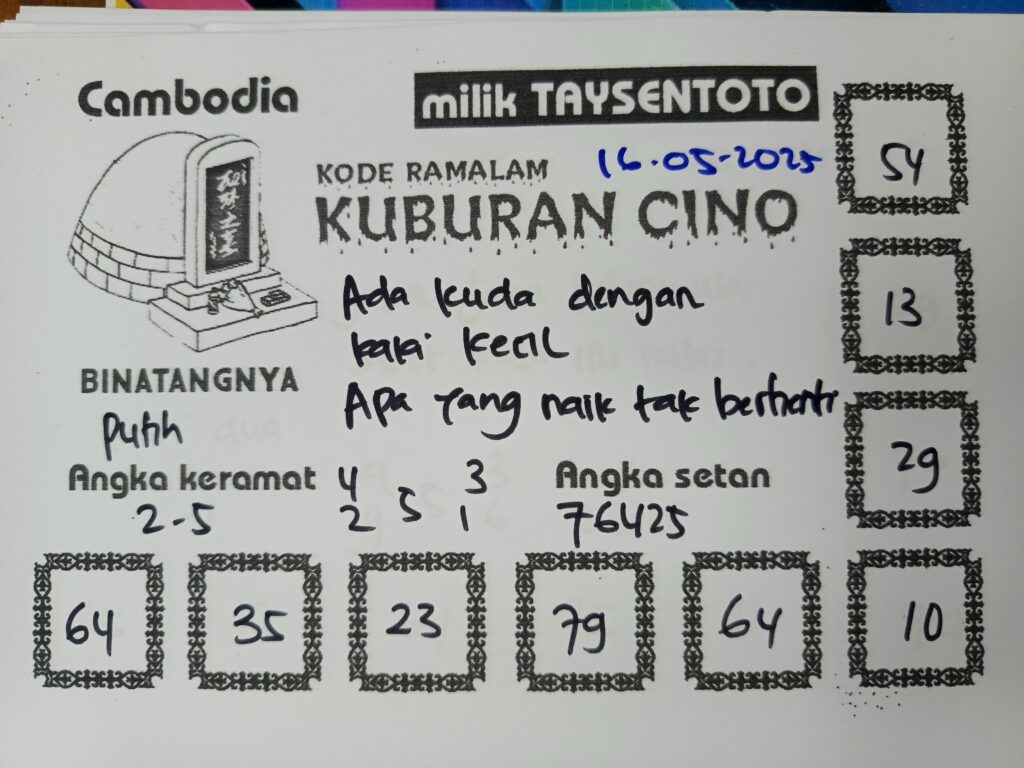 Cambodia
milik TAYSENTOTO
KODE RAMALAM
16.05-2025
KUBURAN CINO
Ada kuda dengan
kaki kecil
Apa yang naik tak berhenti
BINATANGNYA
Putih
Angka keramat
2-5
4 3
5
2 1
Angka setan
76425
54
13
29
64 35 23 79 64 10